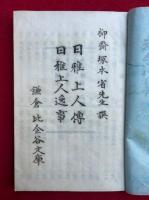 柳齋塚本宥先生撰
日雅上人傳
日雅上人逸事
鎌倉比企谷文庫